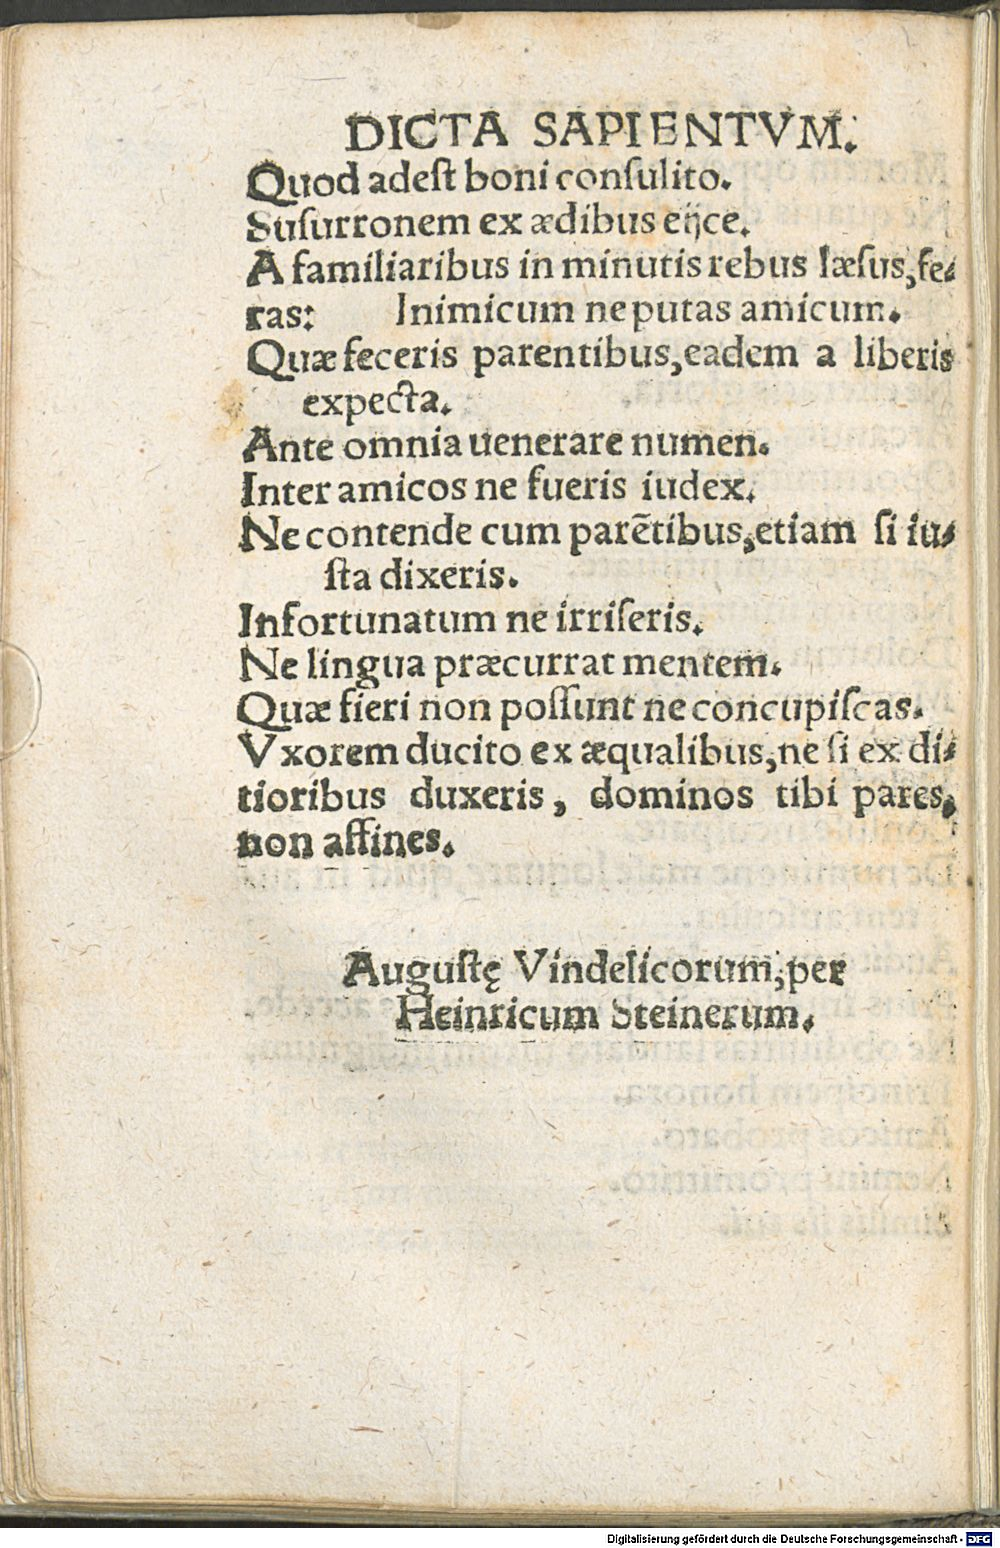 DICTA SAPIENTVM.
Quod adeſt boni conſulito.
Suſurronem ex ædibus eijce.
A familiaribus in minutis rebus læſus, fe-
ras: Inimicum ne putas amicum.
Quæ feceris parentibus, eadem a liberis
expecta.
Ante omnia uenerare numen.
Inter amicos ne fueris iudex.
Ne contende cum parẽtibus, etiam ſi iu-
ſta dixeris.
Infortunatum ne irriſeris.
Ne lingua præcurrat mentem.
Quæ fieri non poſſunt ne concupiſcas.
Vxorem ducito ex æqualibus, ne ſi ex di-
tioribus duxeris, dominos tibi pares,
non affines.
Auguſtę Vindelicorum, per
Heinricum Steinerum.
Digitalisierung gefördert durch die Deutsche Forschungsgemeinschaft - DFG